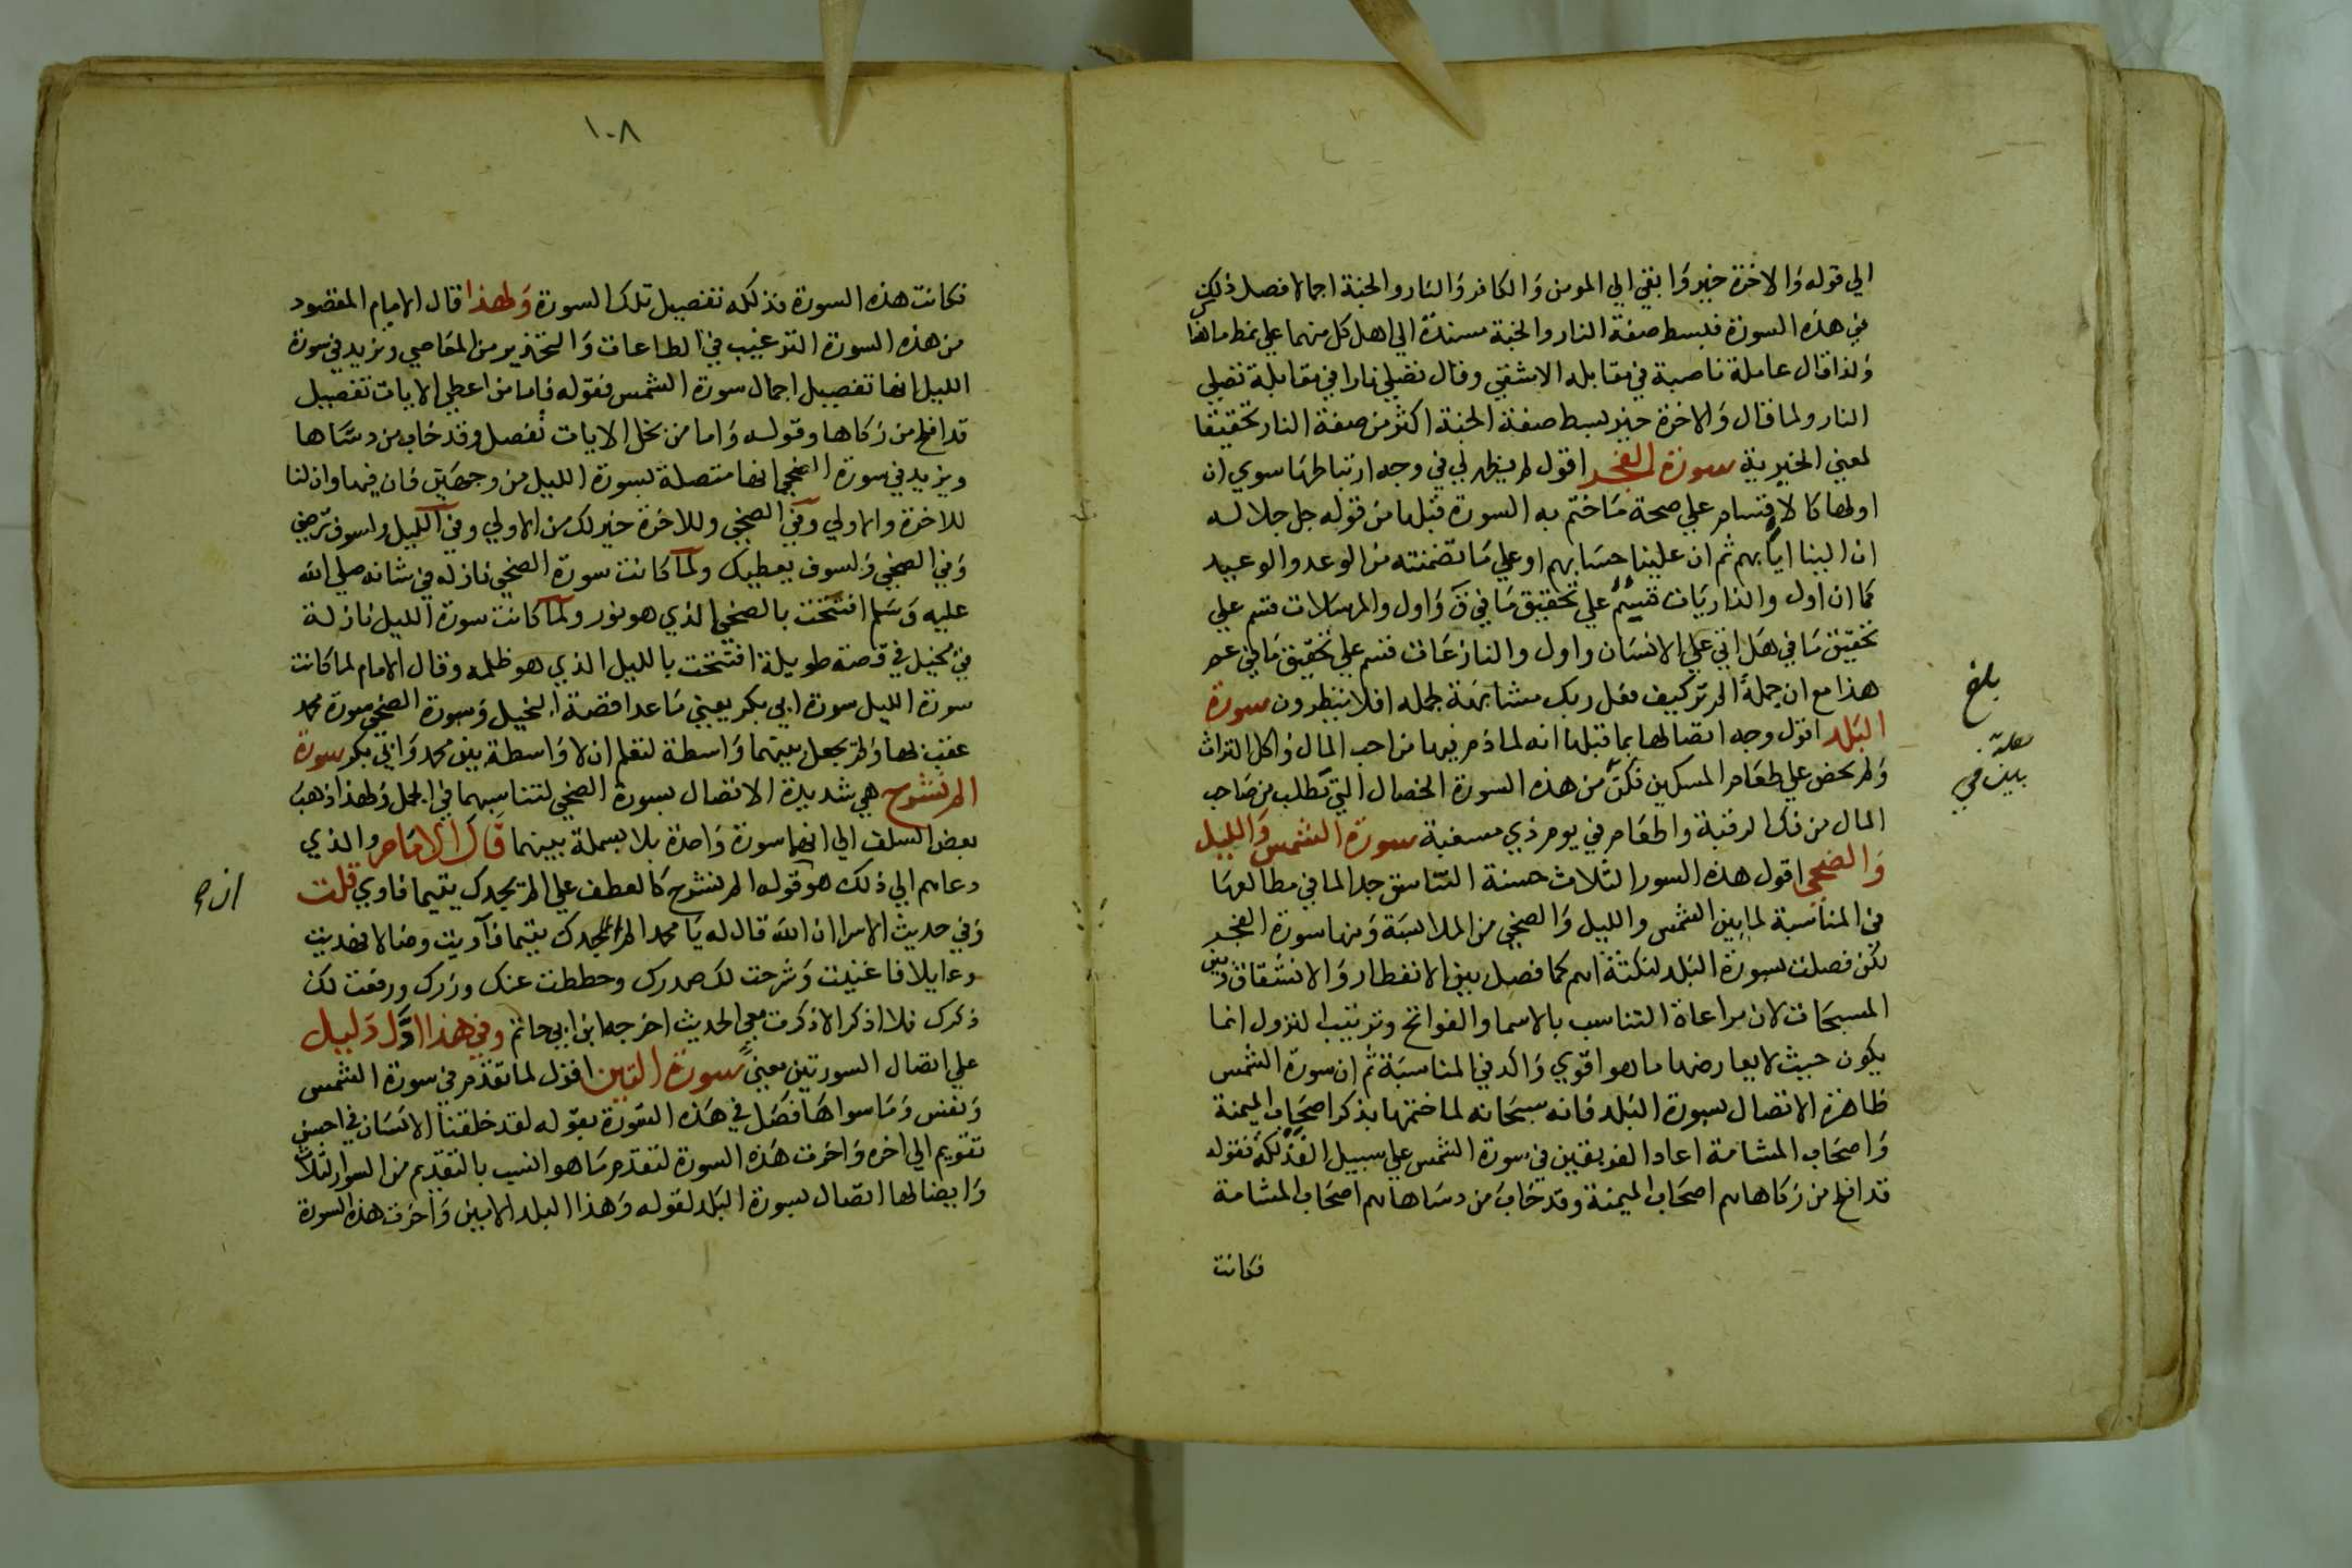 الي قوله والاخرة خير وابقي الي المومن والكافر والنار والجنة اجمالا فصل ذلك
في هذه السورة فبسط صفة النار والجنة مسندة الي اهل كل منهما علي نمط ما هنا
ولذا قال عاملة ناصبة في مقابله الاشقي وقال تصلي نارا في مقابلة تصلي
النار ولما قال والاخرة خير بسط صفة الجنة اكثر من صفة النار تحقيقا
لمعني الخيرية سورة الفجر اقول لم يظهر لي في وجه ارتباطها سوي ان
اولها كالاقسام علي صحة ما ختم به السورة قبلها من قوله جل جلاله
ان الينا ايابهم ثم ان علينا حسابهم او علي ما تضمنته من الوعد والوعيد
كما ان اول والذاريات قسم علي تحقيق ما في ق واول والمرسلات قسم علي
تحقيق ما في هل اتي علي الانسان واول والنازعات قسم علي تحقيق ما في عم
هذا مع ان جملة الم تر كيف فعل ربك مشابهة لجمله افلا ينظرون سورة
البلد اقول وجه اتصالها بما قبلها انه لما ذم فيها من احب المال واكل التراث
ولم يحض علي طعام المسكين ذكر من هذه السورة الخصال التي تطلب من صاحب
المال من فك الرقبة واطعام في يوم ذي مسغبة سورة الشمس والليل
والضحي اقول هذه السور الثلاث حسنة التناسق جدا لما في مطالعها
من المناسبة لما بين الشمس والليل والضحي من الملابسة ومنها سورة الفجر
لكن فصلت بسورة البلد لنكتة اهم كما فصل بين الانفطار والانشقاق وبين
المسبحات لان مراعاة التناسب بالاسما والفواتح وترتيب النزول انما
يكون حيث لا يعارضها ما هو اقوي واكد في المناسبة ثم ان سورة الشمس
ظاهرة الاتصال بسورة البلد فانه سبحانه لما ختمها بذكر اصحاب الميمنة
واصحاب المشامة اعاد الفريقين في سورة الشمس علي سبيل الفذلكة فقوله
قد افلح من زكاها هم اصحاب الميمنة وقد خاب من دساها هم اصحاب المشامة
فكانت
بلغ
١٠٨
فكانت هذه السورة فذلكه تفصيل تلك السورة ولهذا قال الامام المقصود
من هذه السورة الترغيب في الطاعات والتحذير من المعاصي ونزيد في سورة
الليل انها تفصيل اجمال سورة الشمس فقوله فاما من اعطي الايات تفصيل
قد افلح من زكاها وقوله واما من بخل الايات تفصيل وقد خاب من دساها
ويزيد في سورة الضحي انها متصلة بسورة الليل من وجهين فان فيها وان لنا
للاخرة والاولي وفي الضحي وللاخرة خير لك من الاولي وفي الليل ولسوف يرضي
وفي الضحي ولسوف يعطيك ولما كانت سورة الضحي نازله في شانه صلي الله
عليه وسلم افتتحت بالضحي الذي هو نور ولما كانت سورة الليل نازلة
في بخيل في قصة طويلة افتتحت بالليل الذي هو ظلمه وقال الامام لما كانت
سورة الليل سورة ابي بكر يعني ما عدا قصة البخيل وسورة الضحي سورة محمد
عقب بها ولم يجعل بينهما واسطة لتعلم ان لا واسطة بين محمد وابي بكر سورة
الم نشرح هي شديدة الاتصال بسورة الضحي لتناسبهما في الجمل ولهذا ذهب
بعض السلف الي انهما سورة واحدة بلا بسملة بينهما قال الامام والذي
دعاهم الي ذلك هو قوله الم نشرح كالعطف علي الم يجدك يتيما فاوي قلت
وفي حديث الاسرا ان الله قال له يا محمد الم اجدك يتيما فآويت وضالا فهديت
وعايلا فاغنيت وشرحت لك صدرك وحططت عنك وزرك ورفعت لك
ذكرك فلا اذكر الا ذكرت معي الحديث اخرجه ابن ابي حاتم وفي هذا اول دليل
علي اتصال السورتين معني سورة التين اقول لما تقدم في سورة الشمس
ونفس وما سواها فصل في هذه السورة بقوله لقد خلقنا الانسان في احسن
تقويم الي اخره واخرت هذه السورة لتقدم ما هو انسب بالتقديم من السور الثلاث
وايضا لها اتصال بسورة البلد لقوله وهذا البلد الامين واخرت هذه السورة